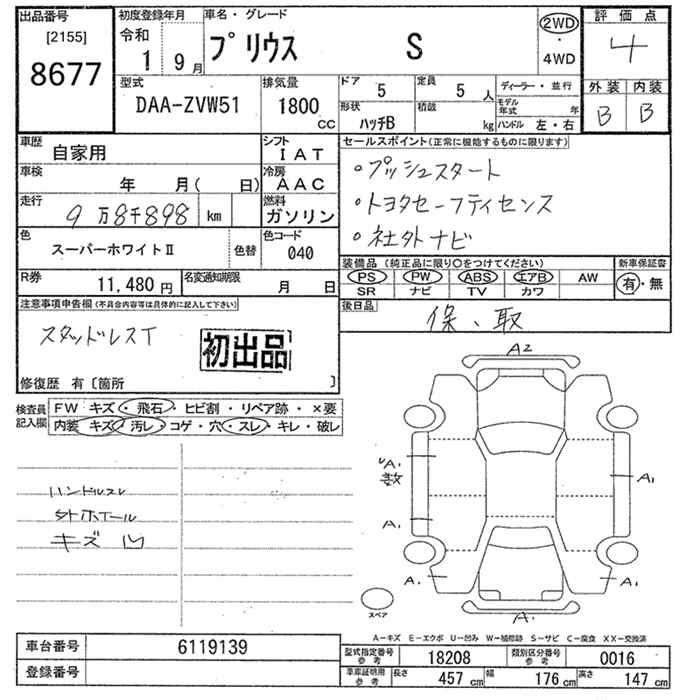 出品番号
[2155]
8677
初度登録年月
令和
1 9月
車名・グレード
プリウス S
2WD
・
4WD
評価点
4
外装 内装
B B
型式
DAA-ZVW51
排気量
1800
CC
ドア
5
定員
5 人
形状
ハッチB
積載
kg
ディーラー・並行
モデル年式 年
ハンドル 左・右
車歴
自家用
シフト
IAT
車検
年 月( 日)
冷房
AAC
走行
9万8千898 km
燃料
ガソリン
色
スーパーホワイトⅡ
色替
色コード
040
R券
11,480 円
名変通知期限
月 日
セールスポイント(正常に機能するものに限ります)
・プッシュスタート
・トヨタセーフティセンス
・社外ナビ
装備品 (純正品に限り○をつけてください)
PS PW ABS エアB AW
SR ナビ TV カワ
新車保証書
有・無
後日品
保、取
注意事項申告欄(不具合内容等は具体的に記入して下さい)
スタッドレスT
初出品
修復歴 有〔箇所 〕
検査員
記入欄
FW キズ・飛石・ヒビ割・リペア跡・×要
内装 キズ・汚レ・コゲ・穴・スレ・キレ・破レ
ハンドルスレ
タイヤホイール
キズ 凹
A2
A1
数
A1
A1
A1
A1
A1
スペア
A-キズ E-エクボ U-凹み W-補修跡 S-サビ C-腐食 XX-交換済
車台番号
6119139
登録番号
型式指定番号
参考
18208
類別区分番号
参考
0016
車庫証明用
参考
長さ
457 cm
幅
176 cm
高さ
147 cm